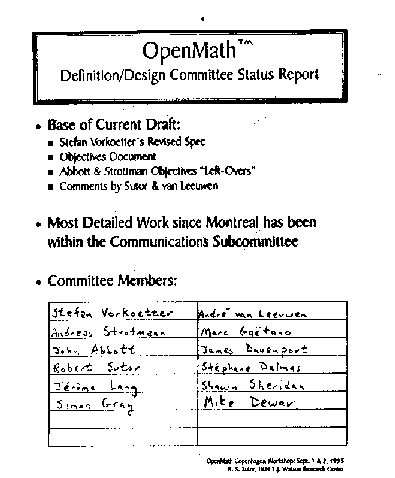 OpenMath™
Definition/Design Committee Status Report
• Base of Current Draft:
■ Stefan Vorkoetter's Revised Spec
■ Objectives Document
■ Abbott & Strotman Objectives "Left-Overs"
■ Comments by Sutor & van Leeuwen
• Most Detailed Work since Montreal has been
within the Communications Subcommittee
• Committee Members:
Stefan Vorkoetter André van Leeuwen
Andreas Strotmann Marc Gaëtano
John Abbott James Davenport
Robert Sutor Stéphane Dalmas
Jérôme Lang Shawn Sheridan
Simon Gray Mike Dewar
OpenMath Copenhagen Workshop: Sept. 1 & 2, 1995
R. S. Sutor, IBM T.J. Watson Research Center